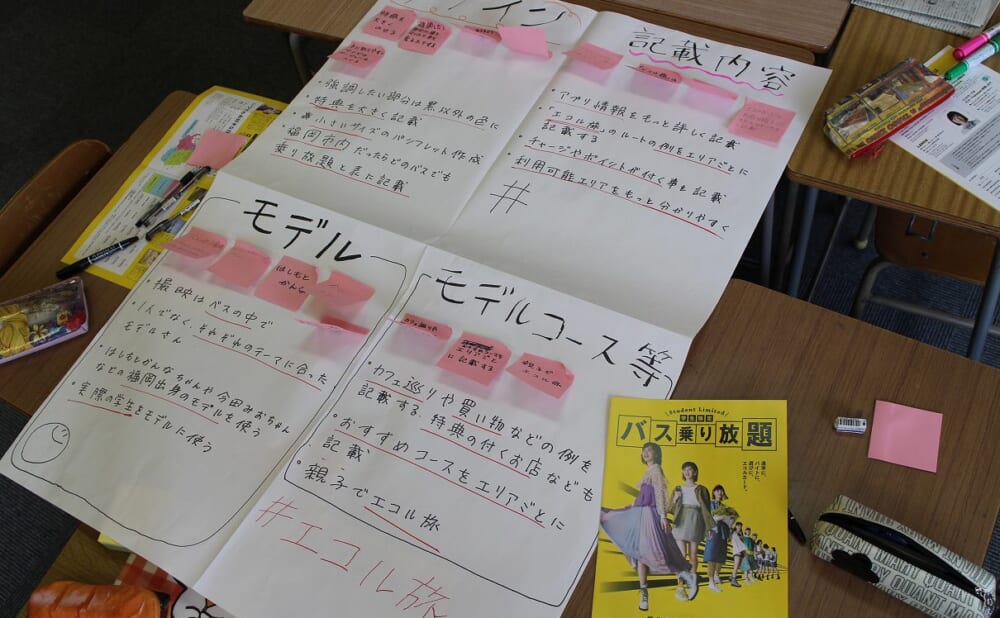 デザイン
特典を
大きく
のせる
・強調したい部分は黒以外の色に
・特典を大きく記載
・小さいサイズのパンフレット作成
・福岡市内だったらどのバスでも
乗り放題と表に記載
記載内容
・アプリ情報をもっと詳しく記載
・「エコル旅」のルートの例をエリアごとに
記載する
・チャージやポイントが付く事を記載
・利用可能エリアをもっと分かりやすく
#
モデル
はしもと
かんな
・撮映はバスの中で
・1人でなく、それぞれのテーマに合った
モデルさん
・はしもとかんなちゃんや今田みおちゃん
などの福岡出身のモデルを使う
・実際の学生をモデルに使う
モデルコース等
エリアごと
に記載
する
親子で
エコル旅
・カフェ巡りや買い物などの例を
記載する、特典の付くお店なども
・おすすめコースをエリアごとに
記載
・親子でエコル旅
#エコル旅
Student Limited
学生限定
バス乗り放題
通学に、
バイトに、
遊びに、
エコルカード。